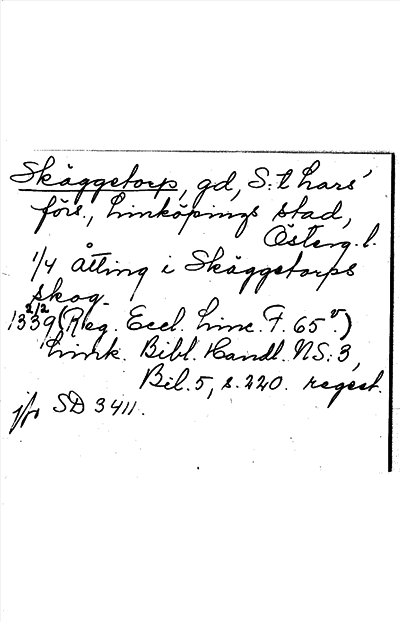 Skäggetorp, gd, S:t Lars'
förs., Linköpings stad,
Österg. l.
1/4 åtting i Skäggetorps
skog.
2/2
1339 (Reg. Eccl. Linc. F. 65 v.)
Link. Bibl. Handl. NS:3,
Bil. 5, s. 220. regest.
jfr SD 3411.